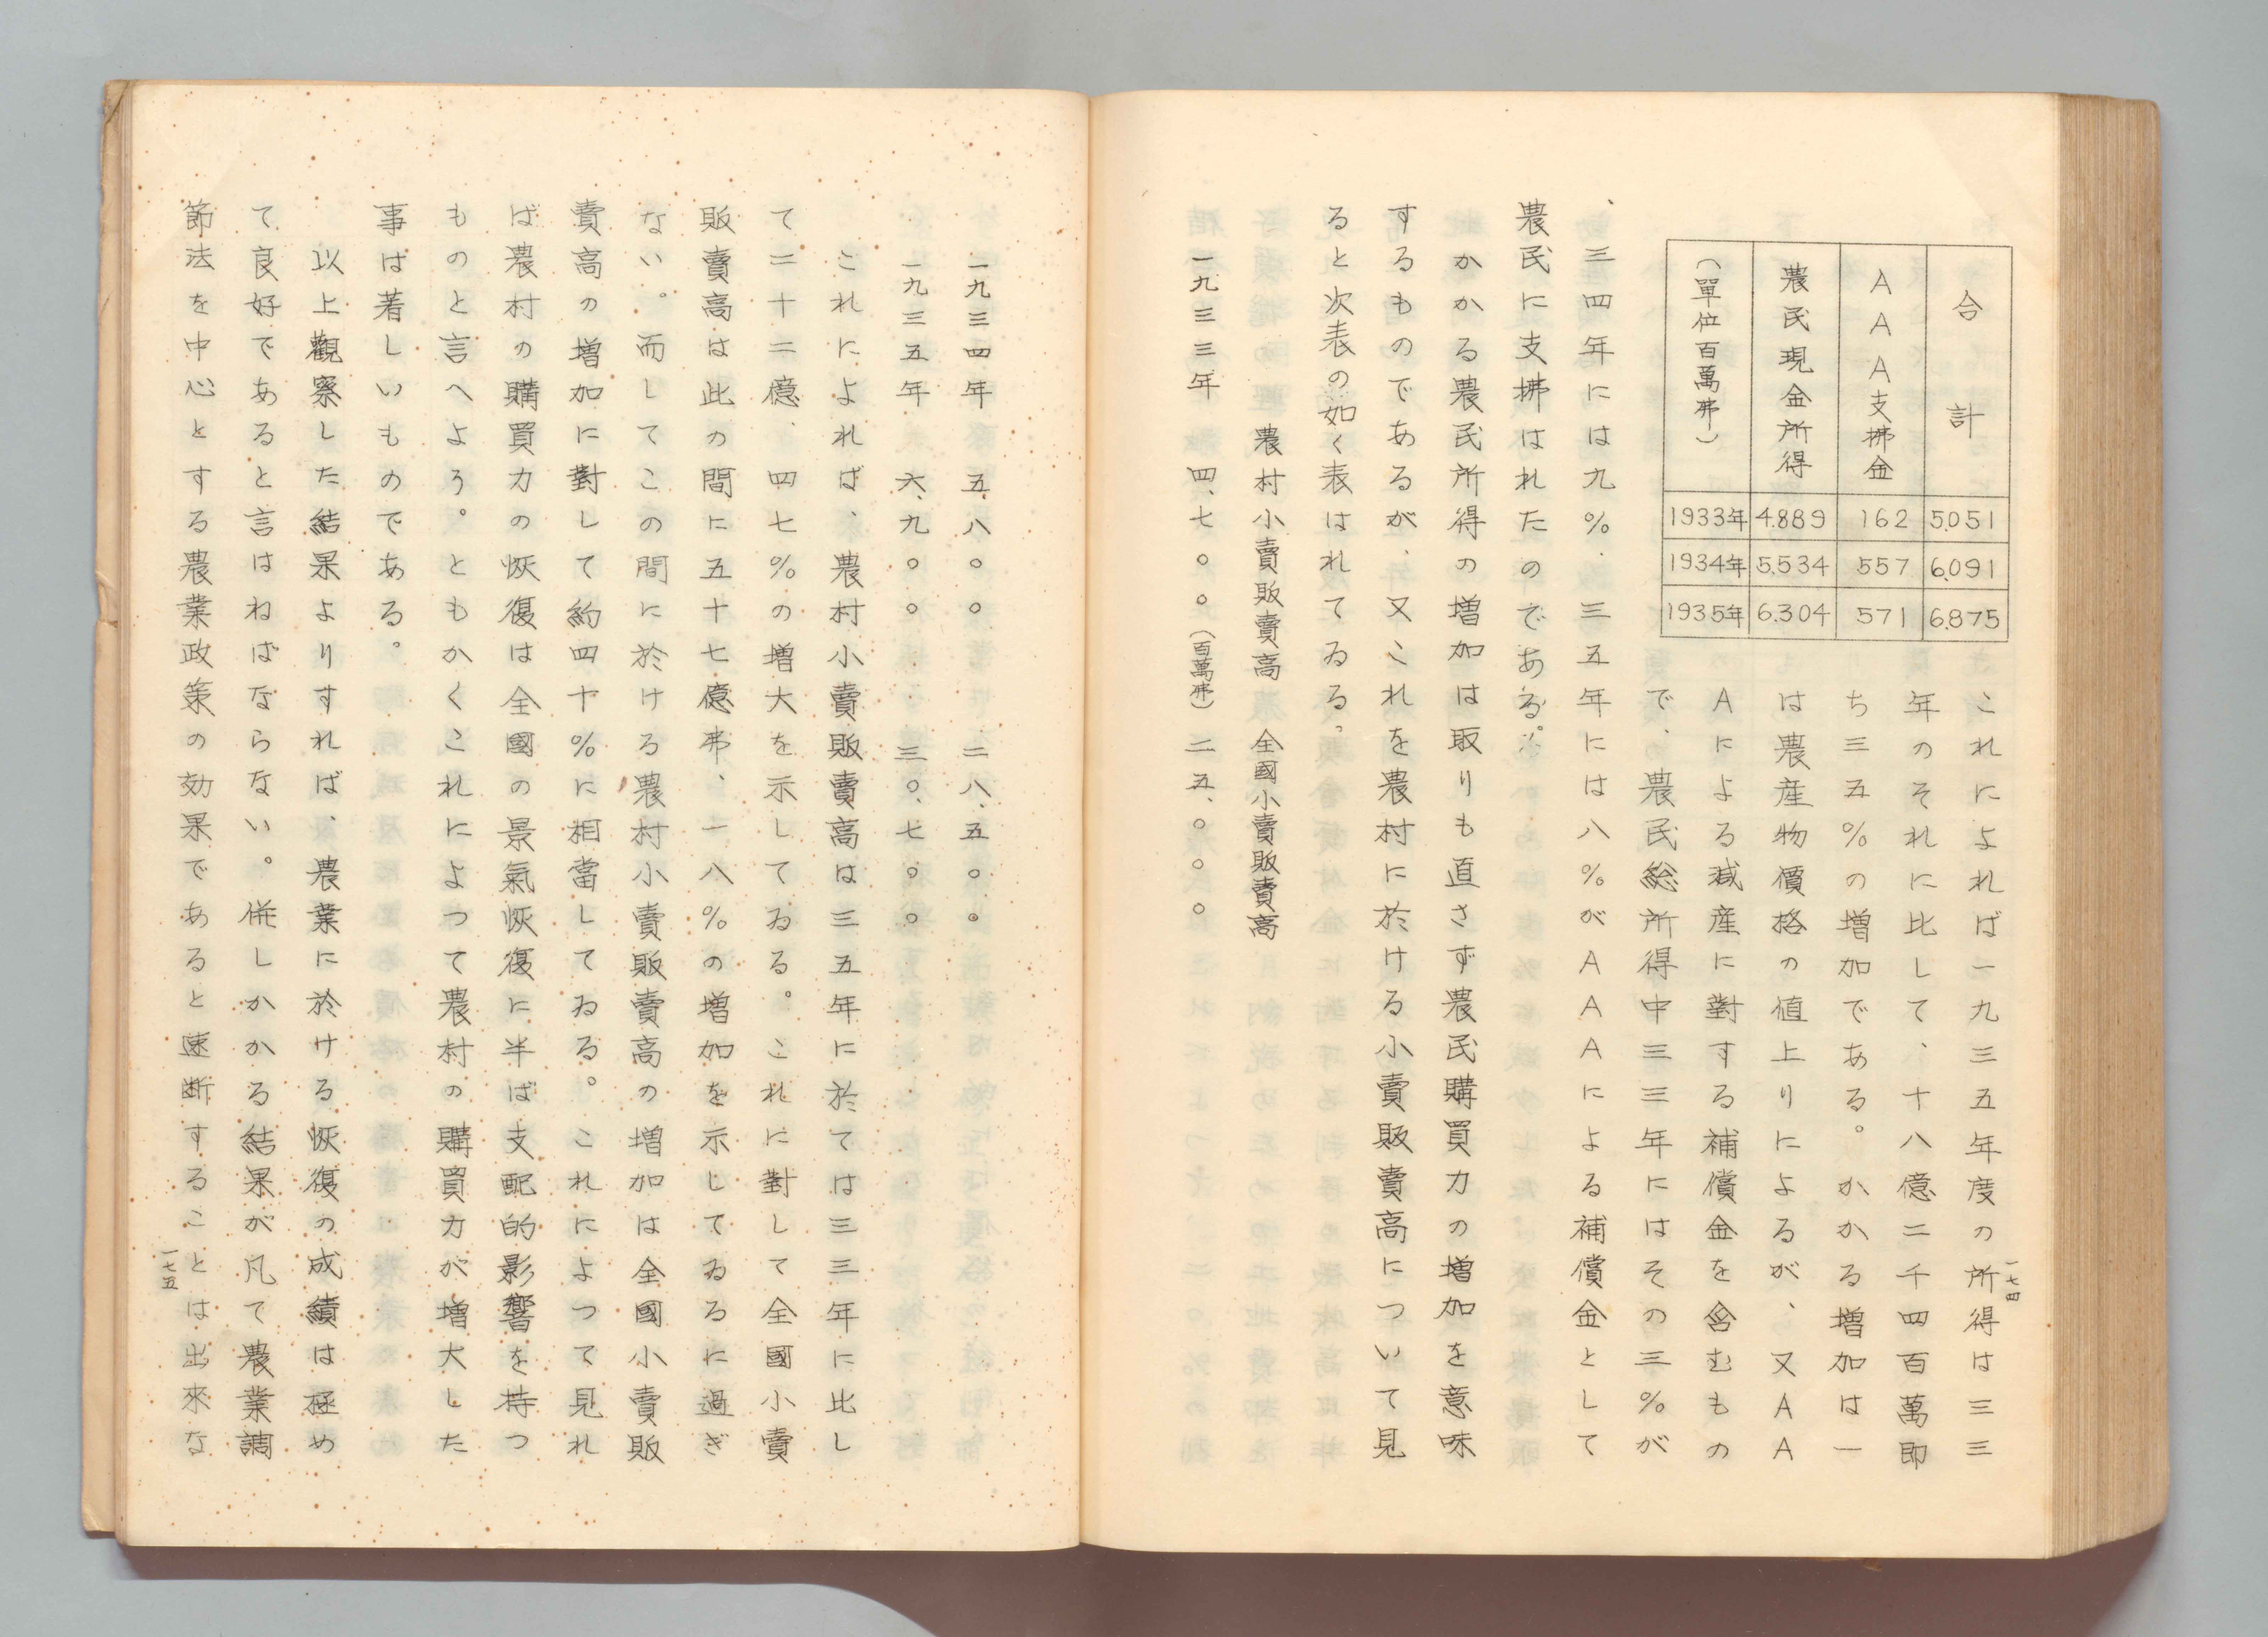 合計
AAA支拂金
農民現金所得
(單位百萬弗)
1933年 4.889 162 5.051
1934年 5.534 557 6.091
1935年 6.304 571 6.875
これによれば一九三五年度の所得は三三
年のそれに比して、十八億二千四百萬即
ち三五%の増加である。かかる増加は一
は農産物價格の値上りによるが、又AA
Aによる減産に對する補償金を含むもの
で、農民総所得中三三年にはその三%が
、三四年には九%、三五年には八%がAAAによる補償金として
農民に支拂はれたのである。
かかる農民所得の増加は取りも直さず農民購買力の増加を意味
するものであるが、又これを農村に於ける小賣販賣高について見
ると次表の如く表はれてゐる。
農村小賣販賣高 全國小賣販賣高
一九三三年 四、七〇〇(百萬弗) 二五、〇〇〇
一七四
一九三四年 五、八〇〇 二八、五〇〇
一九三五年 六、九〇〇 三〇、七〇〇
これによれば、農村小賣販賣高は三五年に於ては三三年に比し
て二十二億、四七%の増大を示してゐる。これに對して全國小賣
販賣高は此の間に五十七億弗、一八%の増加を示してゐるに過ぎ
ない。而してこの間に於ける農村小賣販賣高の増加は全國小賣販
賣高の増加に對して約四十%に相當してゐる。これによつて見れ
ば農村の購買力の恢復は全國の景氣恢復に半ば支配的影響を持つ
ものと言へよう。ともかくこれによつて農村の購買力が増大した
事は著しいものである。
以上觀察した結果よりすれば、農業に於ける恢復の成績は極め
て良好であると言はねばならない。併しかかる結果が凡て農業調
節法を中心とする農業政策の効果であると速断することは出來な
一七五